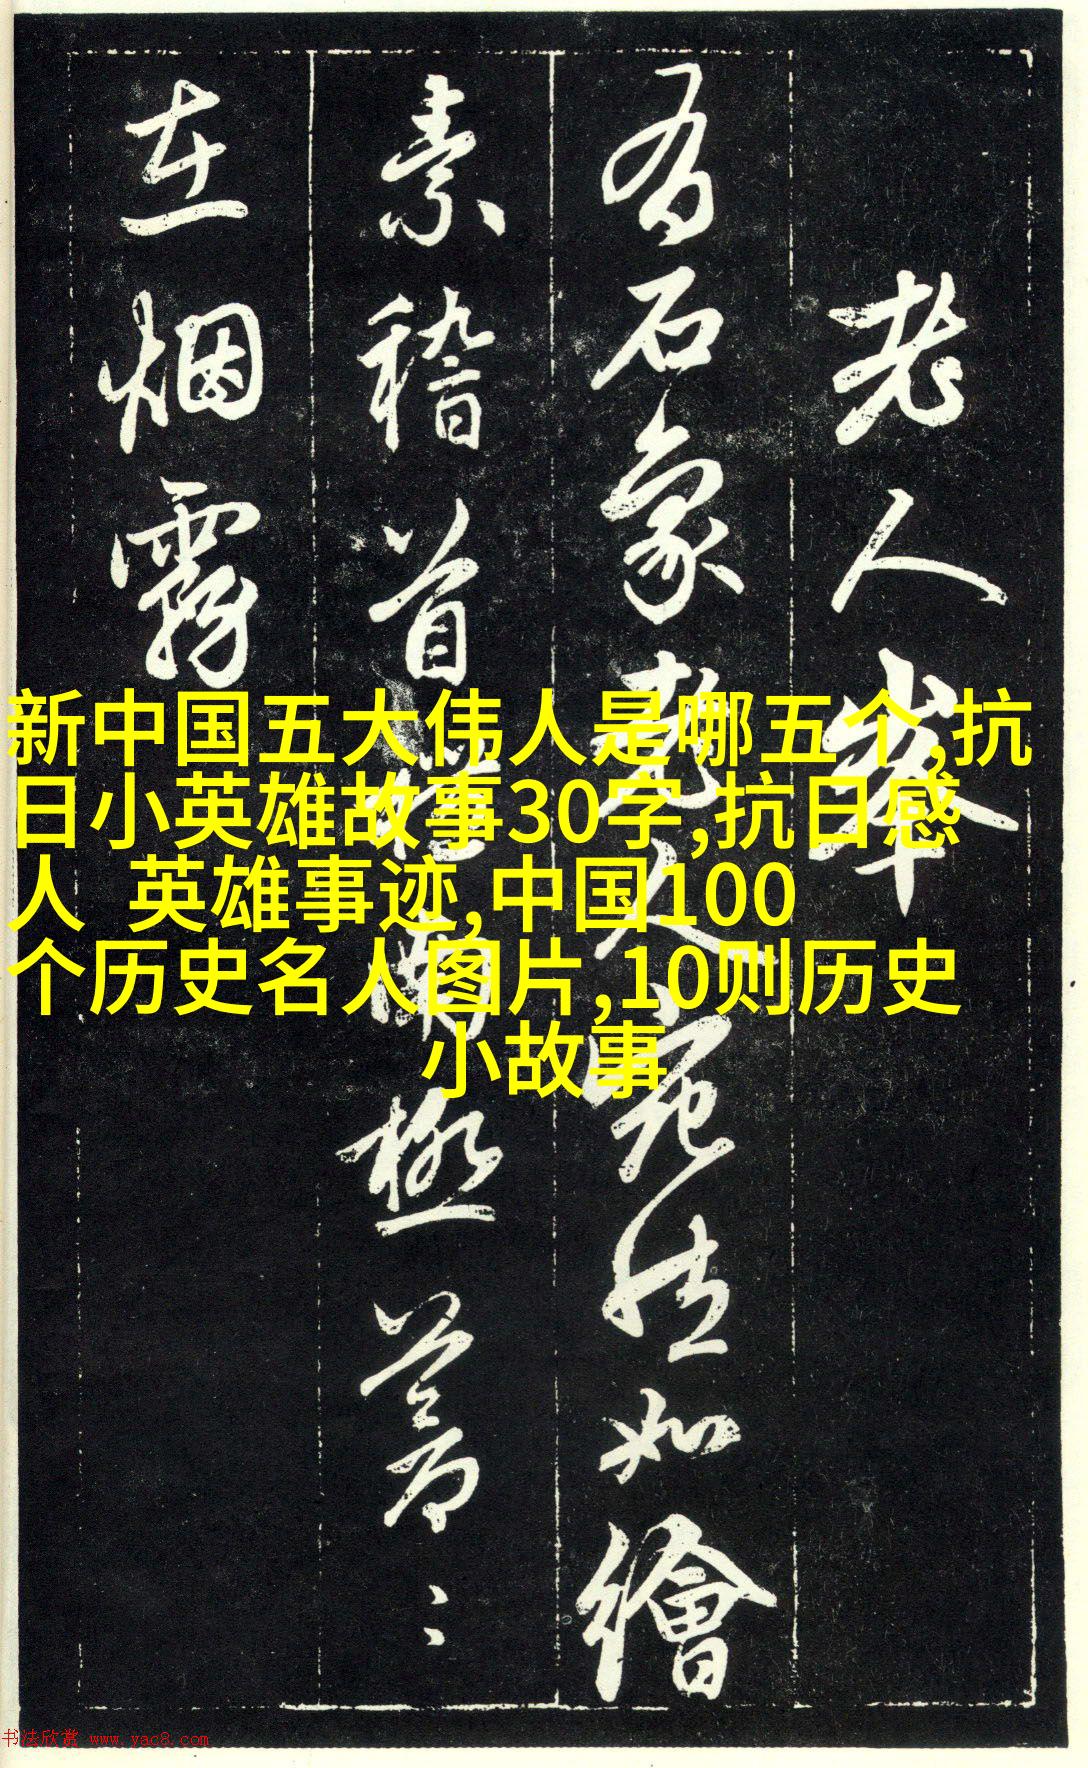 老人峯
有石象老人宛然如繪
素稽首
極蒼蒼
在烟霧
新中国五大伟人是哪五个,抗
日小英雄故事30字,抗日感
人 英雄事迹,中国100
个历史名人图片,10则历史
小故事
书法欣赏 www.yac8.com